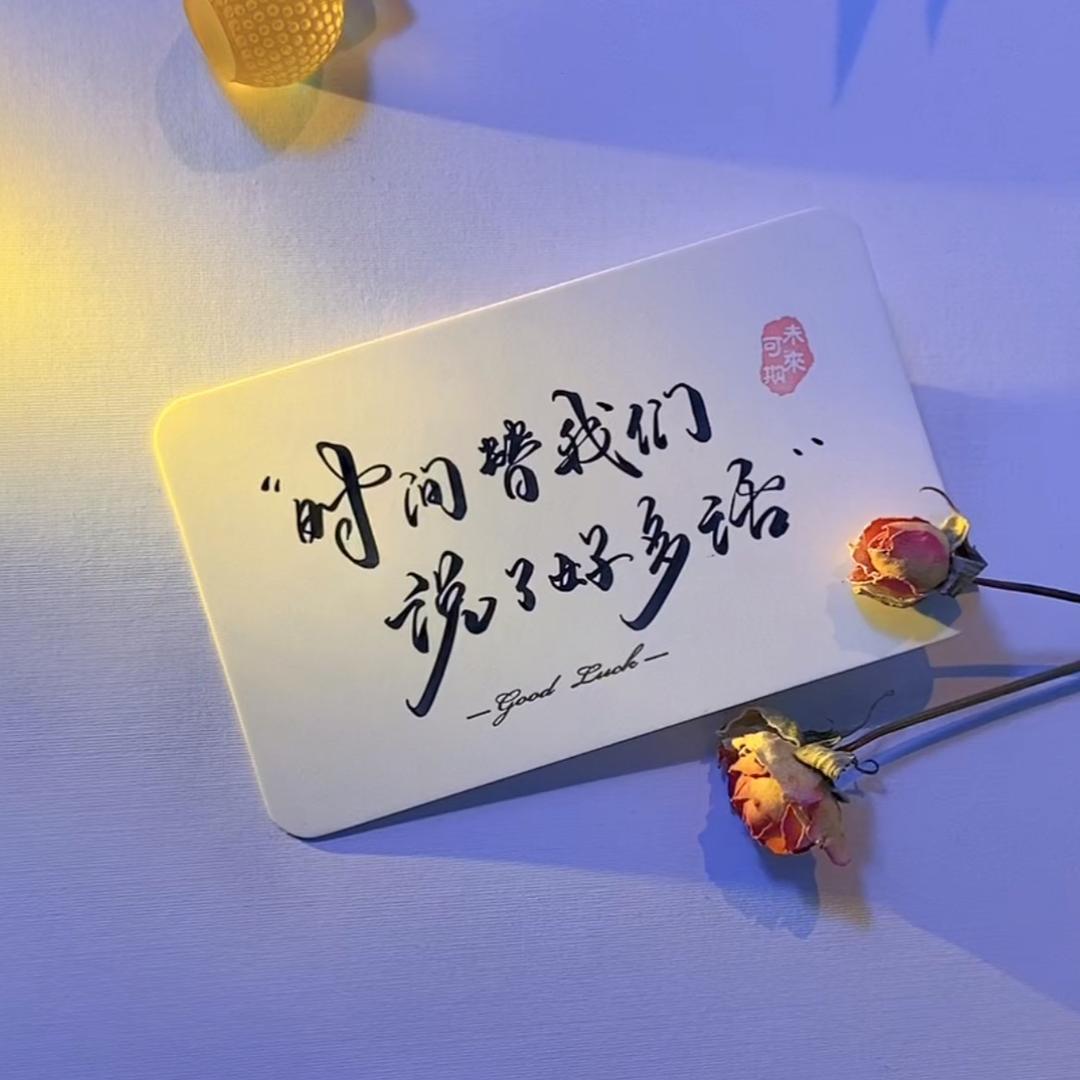 未來
可期
“时间替我们
说了好多话”
—Good Luck—